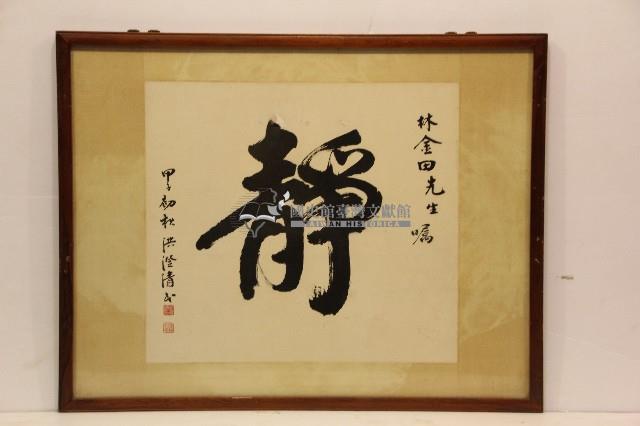 林金田先生嘱
靜
甲子初秋洪澄清书
國史館臺灣文獻館
TAIWAN HISTORICA